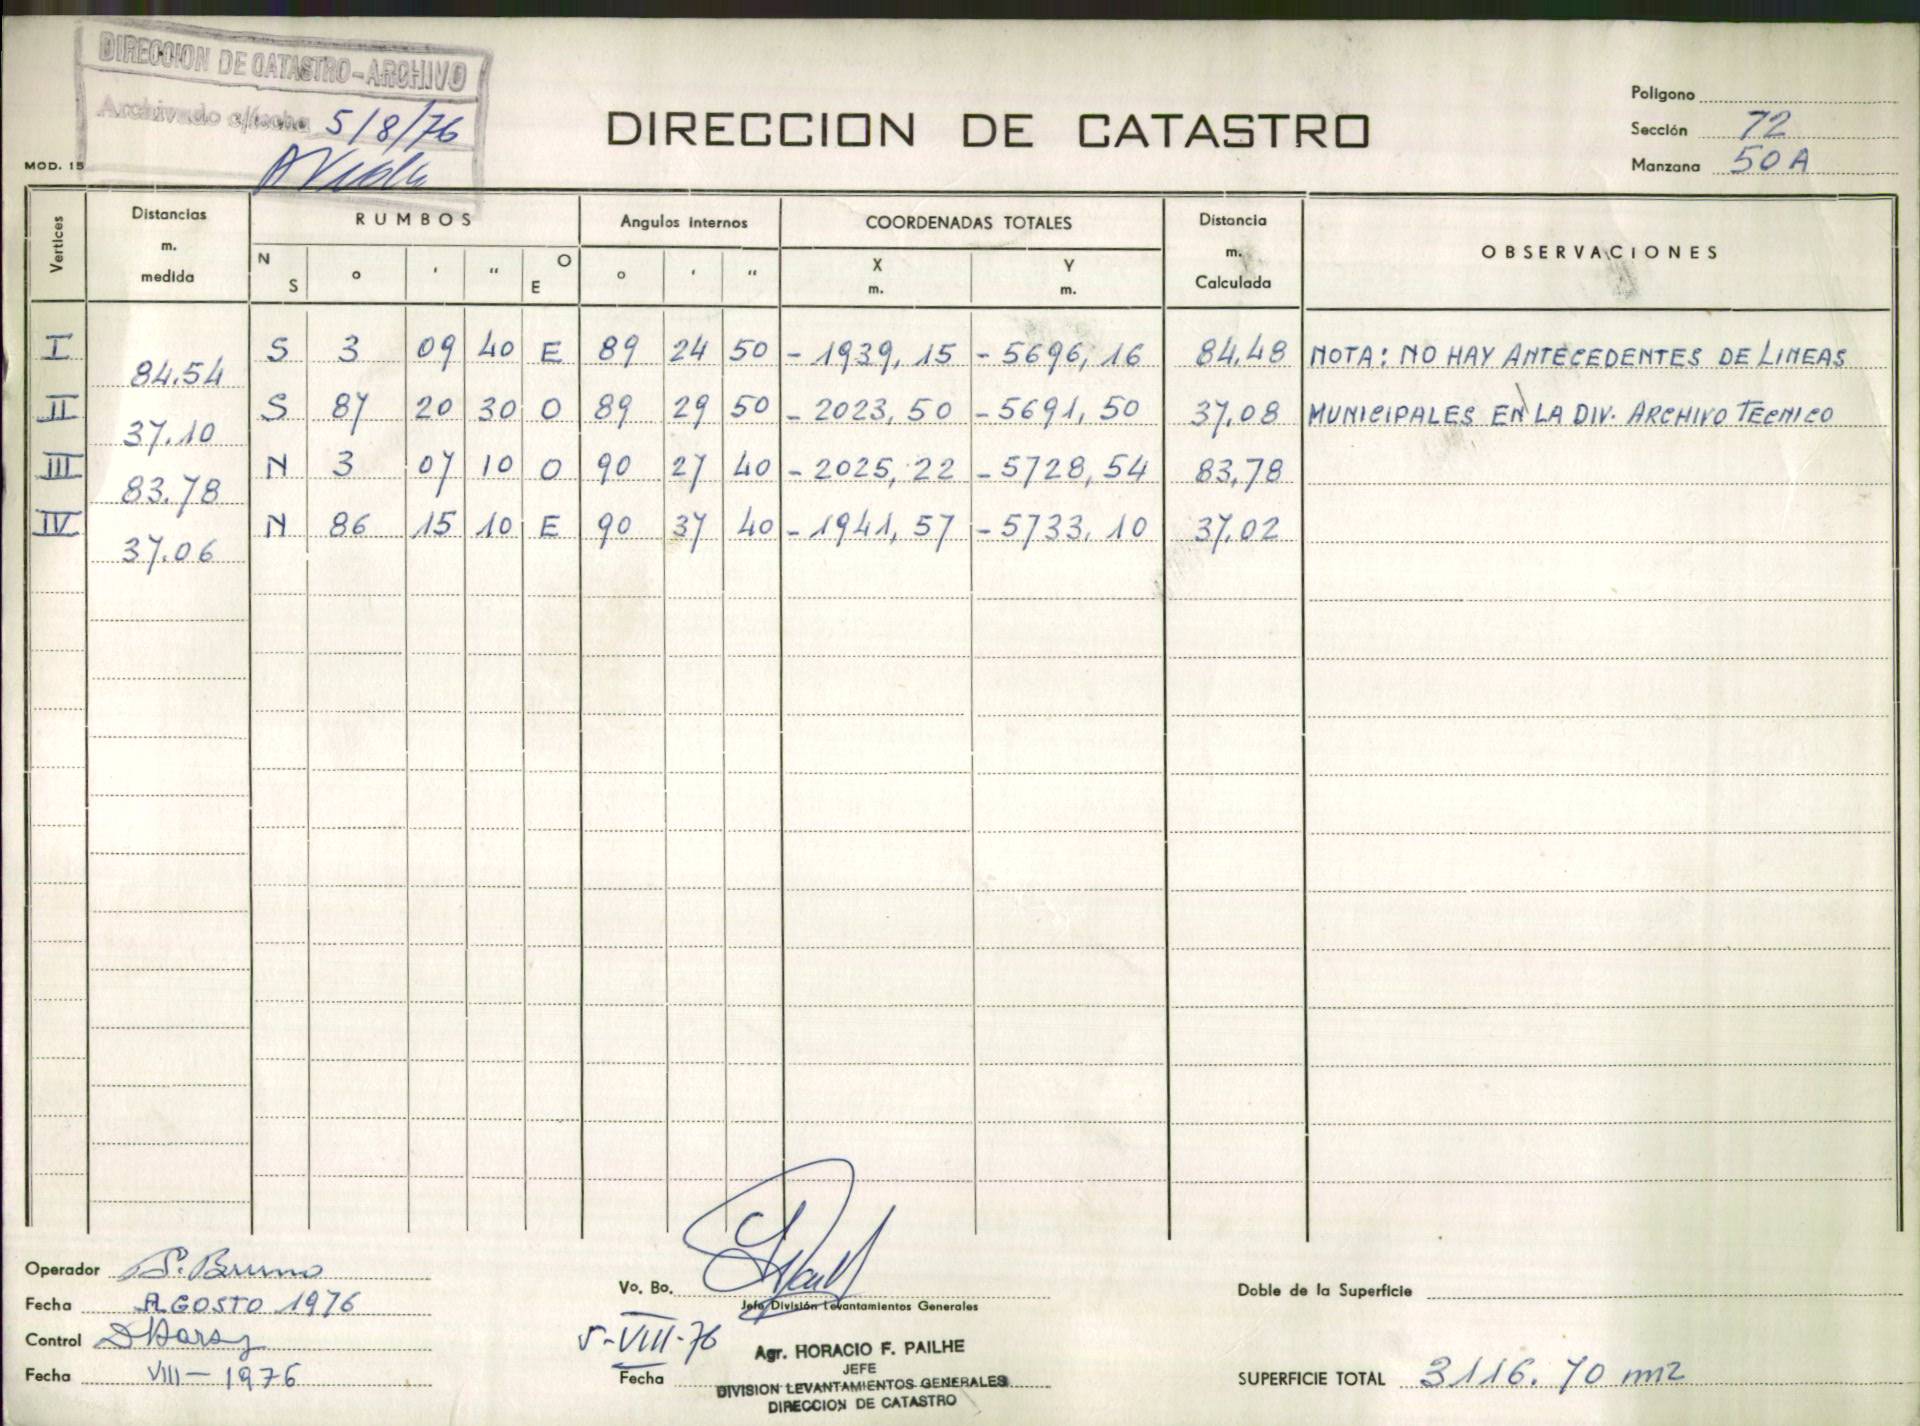 DIRECCION DE CATASTRO-ARCHIVO
Archivado c/fecha 5/8/76
MOD. 15
DIRECCION DE CATASTRO
Polígono
Sección 72
Manzana 50 A
Vertices Distancias m. medida RUMBOS N S ° ' " O E Angulos internos ° ' " COORDENADAS TOTALES X m. Y m. Distancia m. Calculada OBSERVACIONES
I S 3 09 40 E 89 24 50 -1939,15 -5696,16 84,48 NOTA: NO HAY ANTECEDENTES DE LINEAS
84.54
II S 87 20 30 O 89 29 50 -2023,50 -5691,50 37,08 MUNICIPALES EN LA DIV. ARCHIVO TECNICO
37.10
III N 3 07 10 O 90 27 40 -2025,22 -5728,54 83,78
83.78
IV N 86 15 10 E 90 37 40 -1941,57 -5733,10 37,02
37.06
Operador S. Bruno
Fecha AGOSTO 1976
Control
Fecha VIII-1976
Vo. Bo.
Jefe División Levantamientos Generales
5-VIII-76
Fecha
Agr. HORACIO F. PAILHE
JEFE
DIVISION LEVANTAMIENTOS GENERALES
DIRECCION DE CATASTRO
Doble de la Superficie
SUPERFICIE TOTAL 3116.70 m2